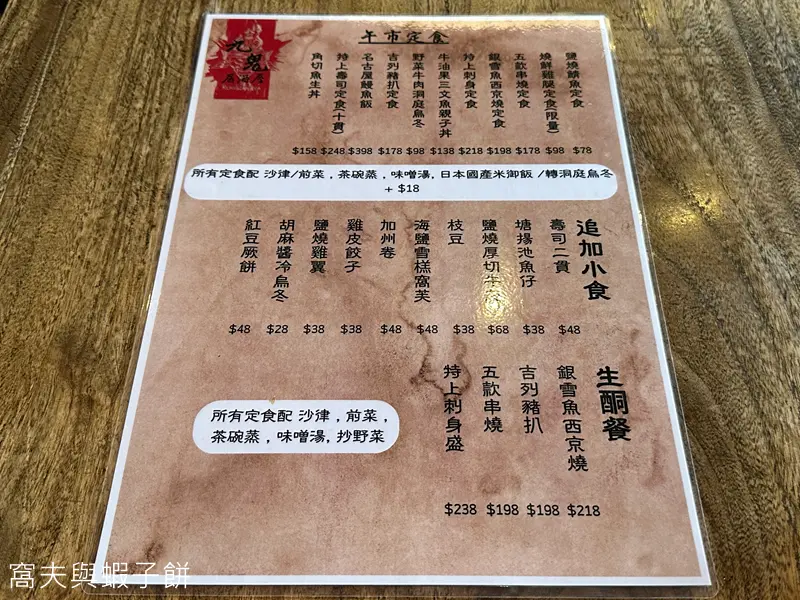 九鬼
居酒屋
午市定食
鹽燒鯖魚定食
燒鮮雞腿定食(限量)
五款串燒定食
銀雪魚西京燒定食
特上刺身定食
牛油果三文魚親子丼
野菜牛肉洞庭烏冬
吉列豬扒定食
名古屋鰻魚飯
特上壽司定食(十貫)
角切魚生丼
$158 $248 $398 $178 $98 $138 $218 $198 $178 $98 $78
所有定食配 沙律/前菜 , 茶碗蒸 , 味噌湯, 日本國產米御飯 /轉洞庭烏冬
+ $18
追加小食
壽司二貫
塘揚池魚仔
鹽燒厚切牛
枝豆
海鹽雪糕窩芙
加州卷
雞皮餃子
鹽燒雞翼
胡麻醬冷烏冬
紅豆厥餅
$48 $28 $38 $38 $48 $48 $38 $68 $38 $48
生酮餐
銀雪魚西京燒
吉列豬扒
五款串燒
特上刺身盛
$238 $198 $198 $218
所有定食配 沙律 , 前菜 ,
茶碗蒸 , 味噌湯, 抄野菜
窩夫與蝦子餅